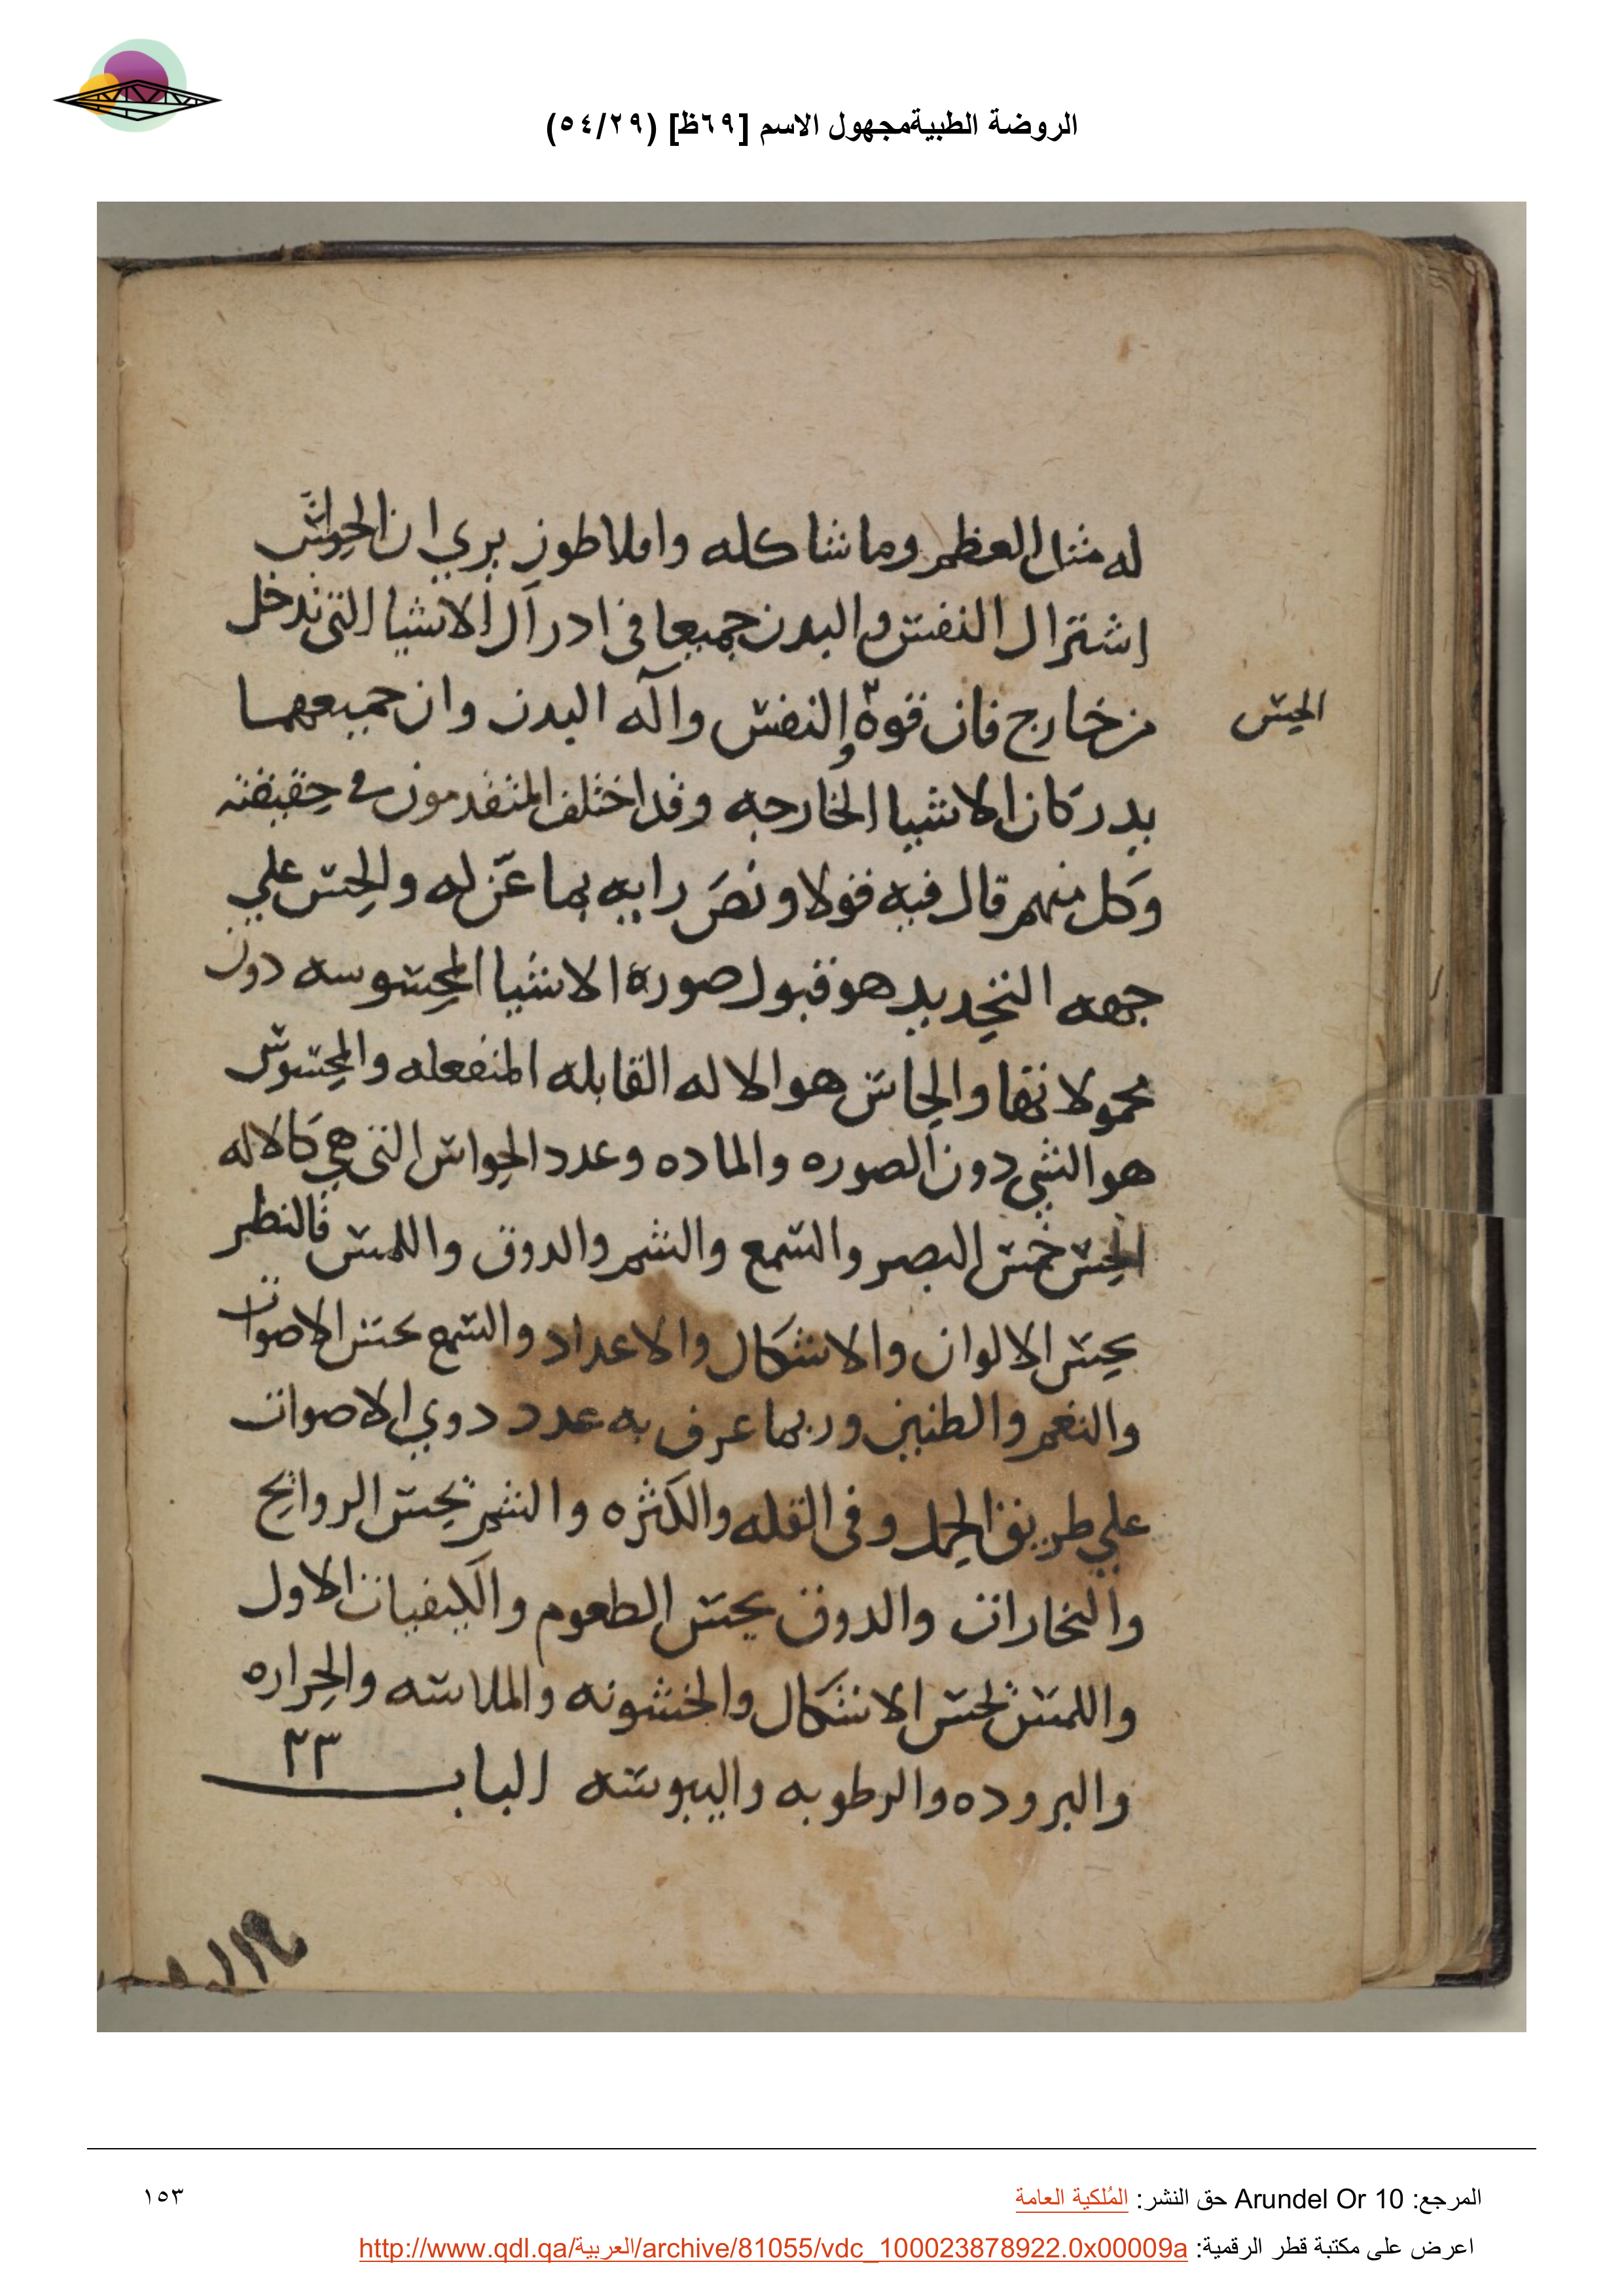 الروضة الطبيةمجهول الاسم [٦٩ظ] (٥٤/٢٩)
له مثال العظم وما شاكله وافلاطون يري ان الحواس
اشتراك النفس والبدن جميعا فى ادراك الاشيا التى تدخل
الحس
من خارج فان قوة النفس واله البدن وان جميعهما
يدركان الاشيا الخارجه وقد اختلف المتقدمون في حقيقته
وكل منهم قال فيه قولا ونص رايه بما عن له والحس علي
جهه التحديد هو قبول صورة الاشيا المحسوسه دون
محمولاتها والحاس هو الاله القابله المنفعله والمحسوس
هو الشي دون الصوره والماده وعدد الحواس التى هي كالاله
الحس خمس البصر والسمع والشم والدوق واللمس فالنظر
يحس الالوان والاشكال والاعداد والسمع يحس الاصوات
والنغم والطنين وربما عرف به عدد دوي الاصوات
علي طريق الجمل وفى القله والكثره والشم يحس الروايح
والبخارات والدوق يحس الطعوم والكيفيات الاول
واللمس يحس الاشكال والخشونه والملاسه والحراره
والبروده والرطوبه واليبوسه الباب ٢٣
المرجع: Arundel Or 10 حق النشر: المُلكية العامة
١٥٣
اعرض على مكتبة قطر الرقمية: http://www.qdl.qa/العربية/archive/81055/vdc_100023878922.0x00009a